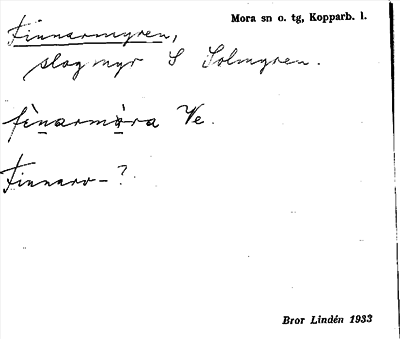 Mora sn o. tg, Kopparb. l.
Finnarmyren,
slogmyr S Solmyren.
fìnarmàra Ve.
Finnarv-?
Bror Lindén 1933